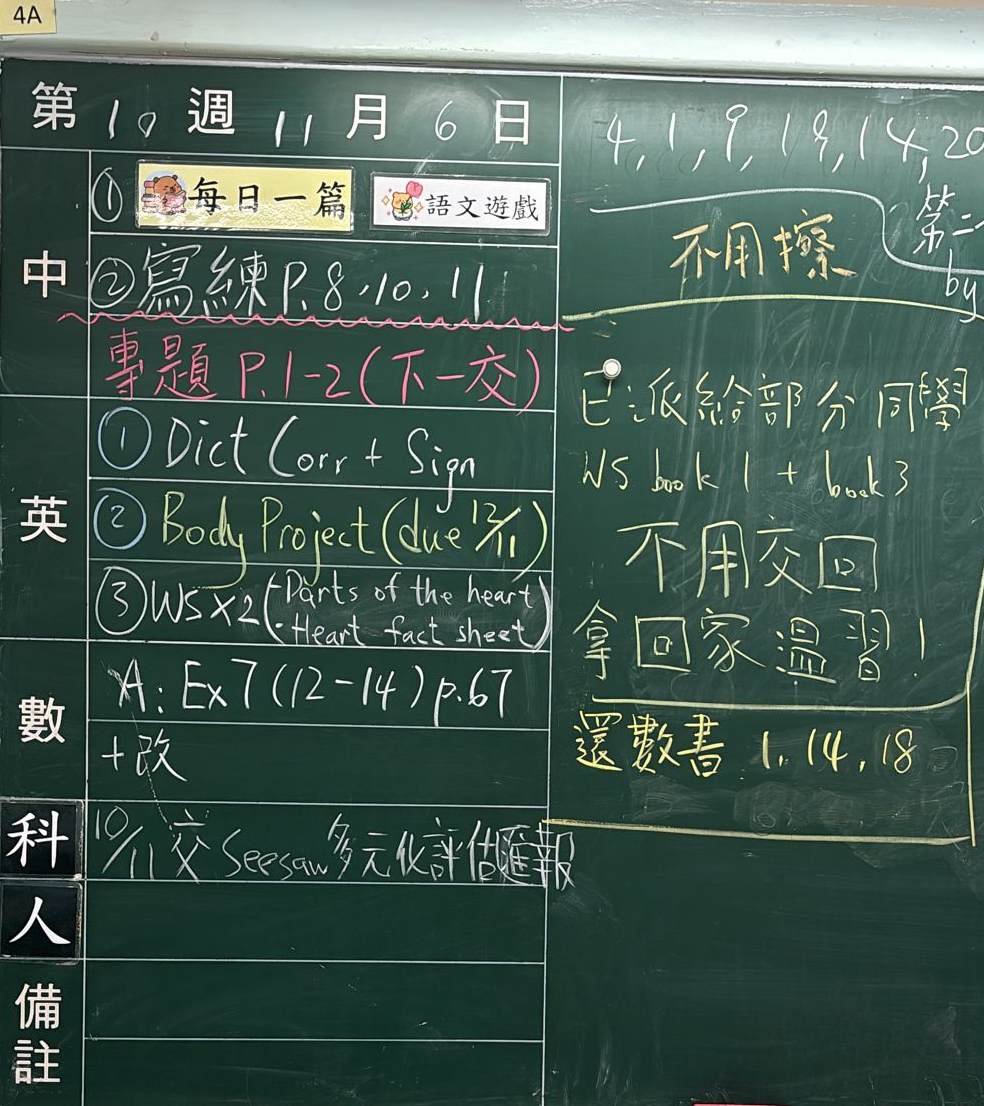 4A
第 10 週 11 月 6 日
中
① 每日一篇 語文遊戲
② 寫練 P.8、10、11
專題 P.1-2(下一交)
英
① Dict Corr + Sign
② Body Project (due 12/11)
③ WS×2 (· Parts of the heart
· Heart fact sheet)
數
A: Ex 7 (12-14) p.67
+改
科
10/11 交 Seesaw 多元化評估匯報
人
備註
4, 1, 9, 19, 14, 20
第二
by
不用擦
已派給部分同學
WS book 1 + book 3
不用交回
拿回家溫習!
還數書: 1, 14, 18